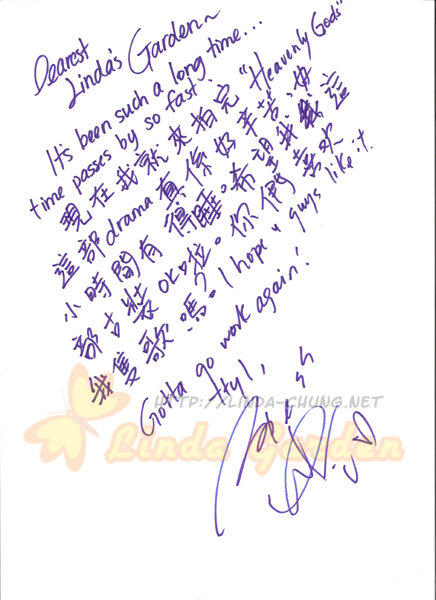 Dearest
Linda's Garden~
It's been such a long time...
time passes by so fast!
現在我就來拍完 "Heavenly Gods"
這部drama真係好辛苦, 好
小時間有得睡。希望我這
部古裝OK啦。你們喜歡
我隻歌嗎? I hope u guys like it.
Gotta go work again!
ttyl,
HTTP://XLINDA-CHUNG.NET
Linda Garden